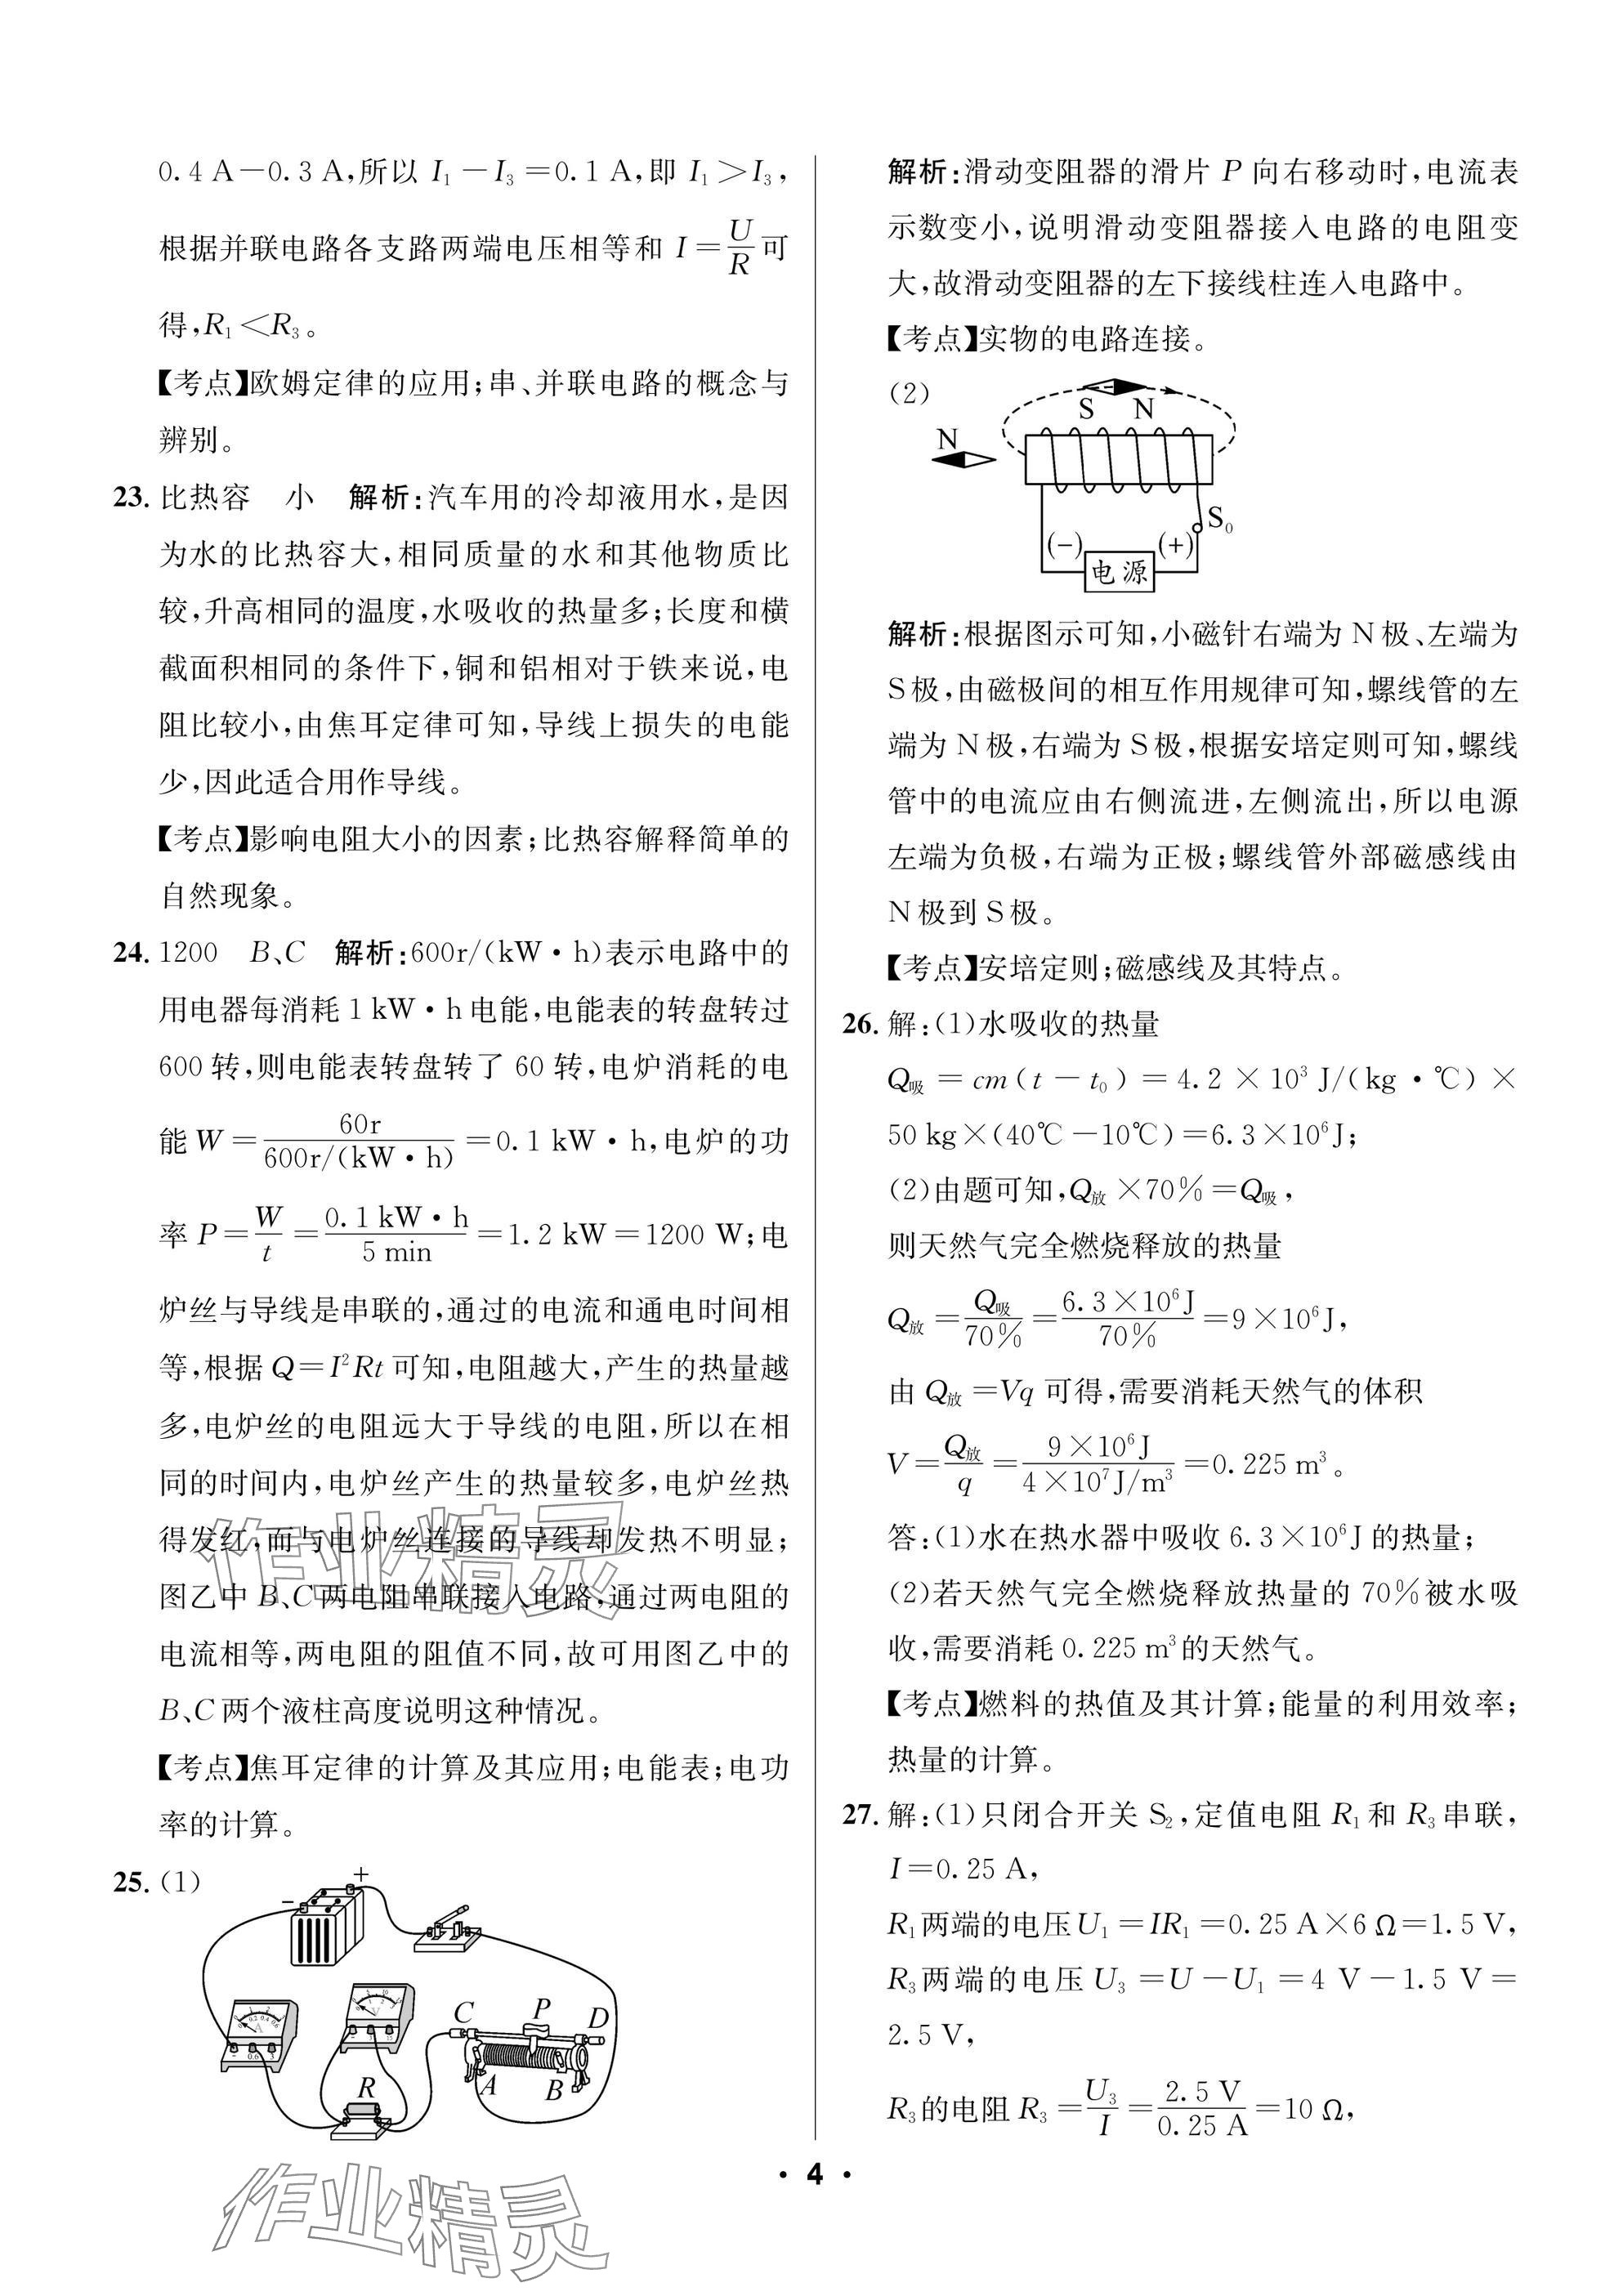 0.4 A-0.3 A,所以 I₁-I₃=0.1 A,即 I₁>I₃,
根据并联电路各支路两端电压相等和 I=U/R可
得,R₁<R₃。
【考点】欧姆定律的应用;串、并联电路的概念与
辨别。
23. 比热容 小 解析:汽车用的冷却液用水,是因
为水的比热容大,相同质量的水和其他物质比
较,升高相同的温度,水吸收的热量多;长度和横
截面积相同的条件下,铜和铝相对于铁来说,电
阻比较小,由焦耳定律可知,导线上损失的电能
少,因此适合用作导线。
【考点】影响电阻大小的因素;比热容解释简单的
自然现象。
24. 1200 B、C 解析:600r/(kW·h)表示电路中的
用电器每消耗 1 kW·h电能,电能表的转盘转过
600 转,则电能表转盘转了 60 转,电炉消耗的电
能 W=60r/600r/(kW·h)=0.1 kW·h,电炉的功
率 P=W/t=0.1 kW·h/5 min=1.2 kW=1200 W;电
炉丝与导线是串联的,通过的电流和通电时间相
等,根据 Q=I²Rt 可知,电阻越大,产生的热量越
多,电炉丝的电阻远大于导线的电阻,所以在相
同的时间内,电炉丝产生的热量较多,电炉丝热
得发红,而与电炉丝连接的导线却发热不明显;
图乙中 B、C两电阻串联接入电路,通过两电阻的
电流相等,两电阻的阻值不同,故可用图乙中的
B、C两个液柱高度说明这种情况。
【考点】焦耳定律的计算及其应用;电能表;电功
率的计算。
25. (1)
+
-
A
V
- 0.6 3
- 3 15
R
C
P
D
A
B
解析:滑动变阻器的滑片 P 向右移动时,电流表
示数变小,说明滑动变阻器接入电路的电阻变
大,故滑动变阻器的左下接线柱连入电路中。
【考点】实物的电路连接。
(2)
S N
N
S₀
(-) (+)
电源
解析:根据图示可知,小磁针右端为 N 极、左端为
S极,由磁极间的相互作用规律可知,螺线管的左
端为 N 极,右端为 S 极,根据安培定则可知,螺线
管中的电流应由右侧流进,左侧流出,所以电源
左端为负极,右端为正极;螺线管外部磁感线由
N极到 S极。
【考点】安培定则;磁感线及其特点。
26. 解:(1)水吸收的热量
Q吸=cm(t-t₀)=4.2×10³ J/(kg·℃)×
50 kg×(40℃-10℃)=6.3×10⁶J;
(2)由题可知,Q放×70%=Q吸,
则天然气完全燃烧释放的热量
Q放=Q吸/70%=6.3×10⁶J/70%=9×10⁶J,
由 Q放=Vq 可得,需要消耗天然气的体积
V=Q放/q=9×10⁶J/4×10⁷J/m³=0.225 m³。
答:(1)水在热水器中吸收 6.3×10⁶J 的热量;
(2)若天然气完全燃烧释放热量的 70%被水吸
收,需要消耗 0.225 m³的天然气。
【考点】燃料的热值及其计算;能量的利用效率;
热量的计算。
27. 解:(1)只闭合开关 S₂,定值电阻 R₁和 R₃串联,
I=0.25 A,
R₁两端的电压U₁=IR₁=0.25 A×6 Ω=1.5 V,
R₃两端的电压 U₃=U-U₁=4 V-1.5 V=
2.5 V,
R₃的电阻 R₃=U₃/I=2.5 V/0.25 A=10 Ω,
· 4 ·
作业精灵
作业精灵